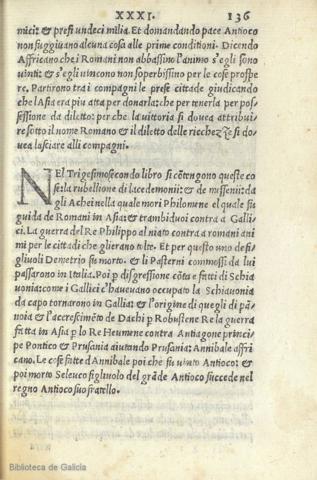 XXXI. 136
mici: & presi undeci milia. Et domandando pace Antioco
non suggiuano alcuna cosa alle prime conditioni. Dicendo
Affricano che i Romani non abbassino l'animo s'egli sono
uinti: & s'egli uincono non soperbissino per le cose prospe
re. Partirono tra i compagni le prese cittade giudicando
che l'Asia era piu atta per donarla: che per tenerla per pos-
sessione da diletto: per che la uittoria si douea attribui,
re sotto il nome Romano & il diletto delle richezze si do-
uea lasciare alli compagni.
NEl Trigesimosecondo libro si cōtengono queste co
se: la rubellione di lacedemonii: & de messenii: da
gli Acheinella quale mori Philomene el quale fu
guida de Romani in Asia: & trambiduoi contra a Galli-
ci. La guerra del Re Philippo al niato contra a romani ani
mi per le citta di che glierano tolte. Et per questo uno de fi-
gliuoli Demetrio fu morto. & li Pasterni commossi da lui
passarono in Italia. Poi p disgressione cōta e fatti di Schia
uonia: come i Gallici c'haueuano occupato la Schiauonia
da capo tornarono in Gallia: & l'origine di quegli di pā-
noia & l'accrescimēto de Dachi p Robustene Re la guerra
fatta in Asia p lo Re Heumene contra Antiagone princi-
pe Pontico & Prusania aiutando Prusania: Annibale affri
cano. Le cose fatte d'Annibale poi che fu uinto Antioco: &
poi morto Seleuco figliuolo del grāde Antioco succede nel
regno Antioco suo fratello.
Biblioteca de Galicia